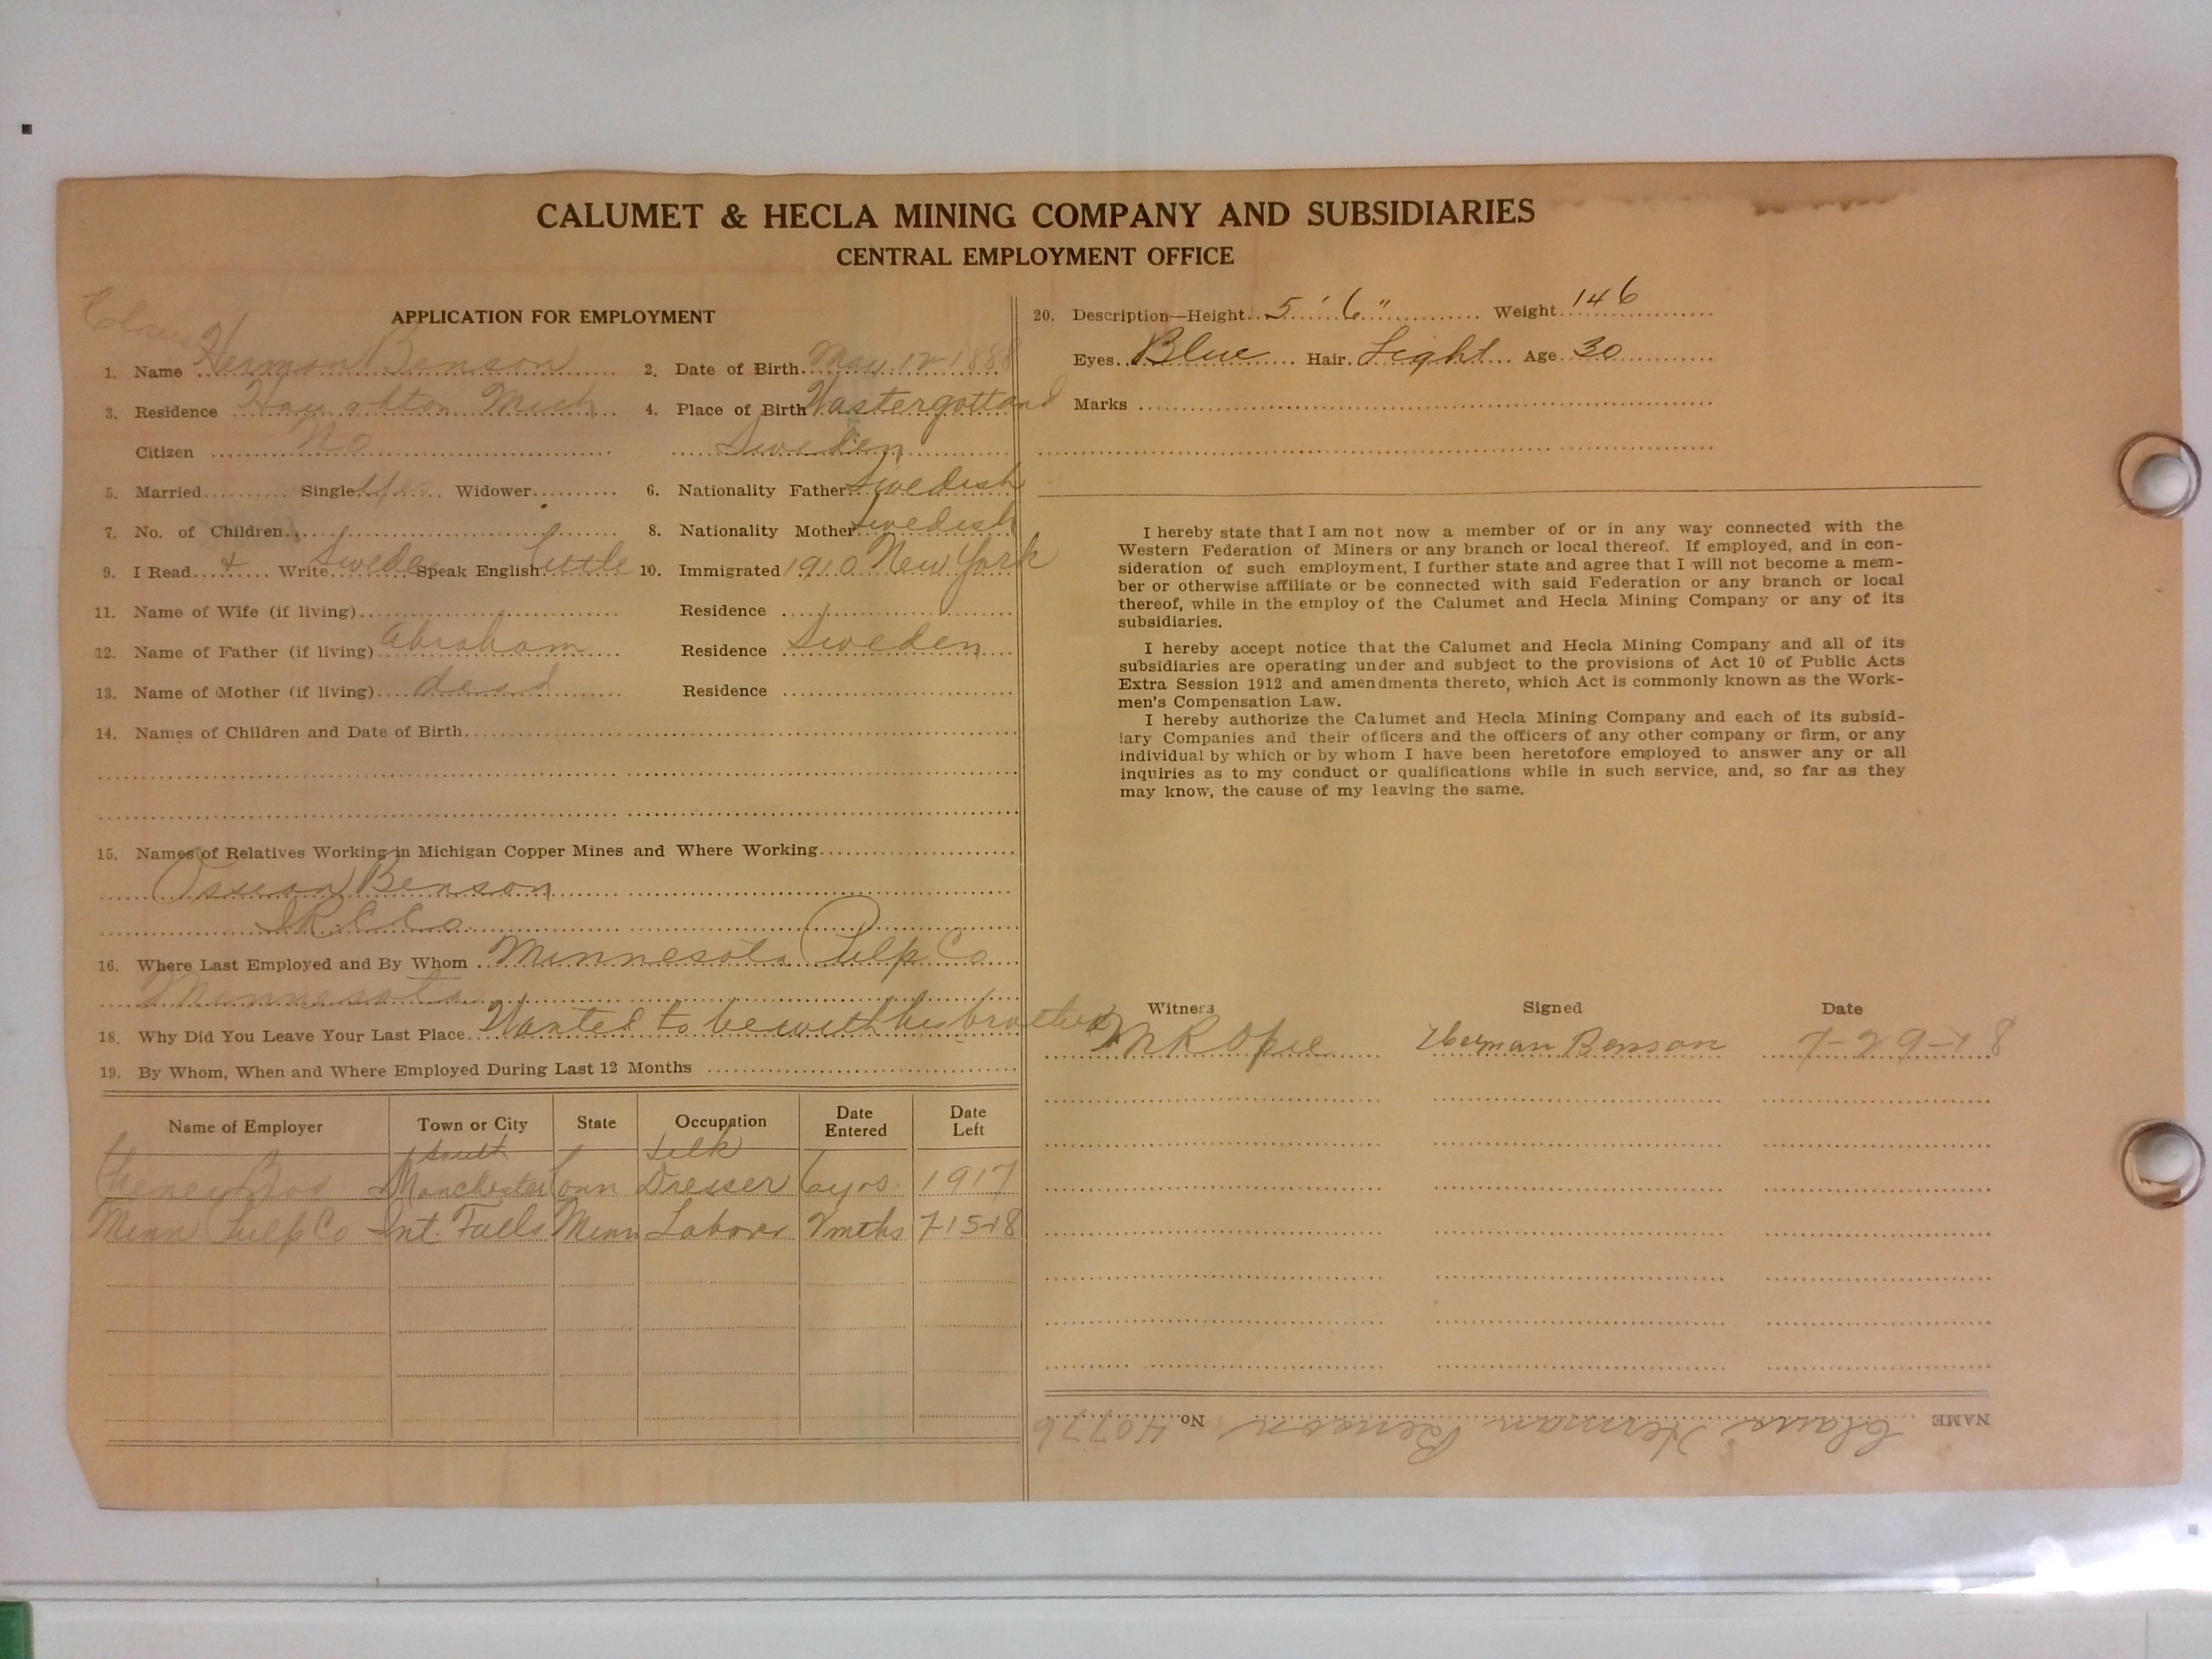 CALUMET & HECLA MINING COMPANY AND SUBSIDIARIES
CENTRAL EMPLOYMENT OFFICE
APPLICATION FOR EMPLOYMENT
Claus
1. Name Herman Benson 2. Date of Birth May 12 1888
3. Residence Houghton Mich 4. Place of Birth Wastergottland
Citizen No Sweden
5. Married Single Yes Widower 6. Nationality Father Swedish
7. No. of Children 8. Nationality Mother Swedish
9. I Read & Write Swede Speak English Little 10. Immigrated 1910 New York
11. Name of Wife (if living) Residence
12. Name of Father (if living) Abraham Residence Sweden
13. Name of Mother (if living) dead Residence
14. Names of Children and Date of Birth
15. Names of Relatives Working in Michigan Copper Mines and Where Working
Benson
16. Where Last Employed and By Whom Minnesota Pulp Co
Minnesota
18. Why Did You Leave Your Last Place Wanted to be with his brother
19. By Whom, When and Where Employed During Last 12 Months
Name of Employer Town or City State Occupation Date Entered Date Left
Cheney Bros South Manchester Conn Silk Dresser 6 yrs. 1917
Minn Pulp Co Int. Falls Minn Laborer 2 mths 7-15-18
20. Description—Height 5' 6" Weight 146
Eyes Blue Hair Light Age 30
Marks
I hereby state that I am not now a member of or in any way connected with the
Western Federation of Miners or any branch or local thereof. If employed, and in con-
sideration of such employment, I further state and agree that I will not become a mem-
ber or otherwise affiliate or be connected with said Federation or any branch or local
thereof, while in the employ of the Calumet and Hecla Mining Company or any of its
subsidiaries.
I hereby accept notice that the Calumet and Hecla Mining Company and all of its
subsidiaries are operating under and subject to the provisions of Act 10 of Public Acts
Extra Session 1912 and amendments thereto, which Act is commonly known as the Work-
men's Compensation Law.
I hereby authorize the Calumet and Hecla Mining Company and each of its subsid-
iary Companies and their officers and the officers of any other company or firm, or any
individual by which or by whom I have been heretofore employed to answer any or all
inquiries as to my conduct or qualifications while in such service, and, so far as they
may know, the cause of my leaving the same.
Witness Signed Date
M R Opie Herman Benson 7-29-18
NAME Claus Herman Benson No. 40776